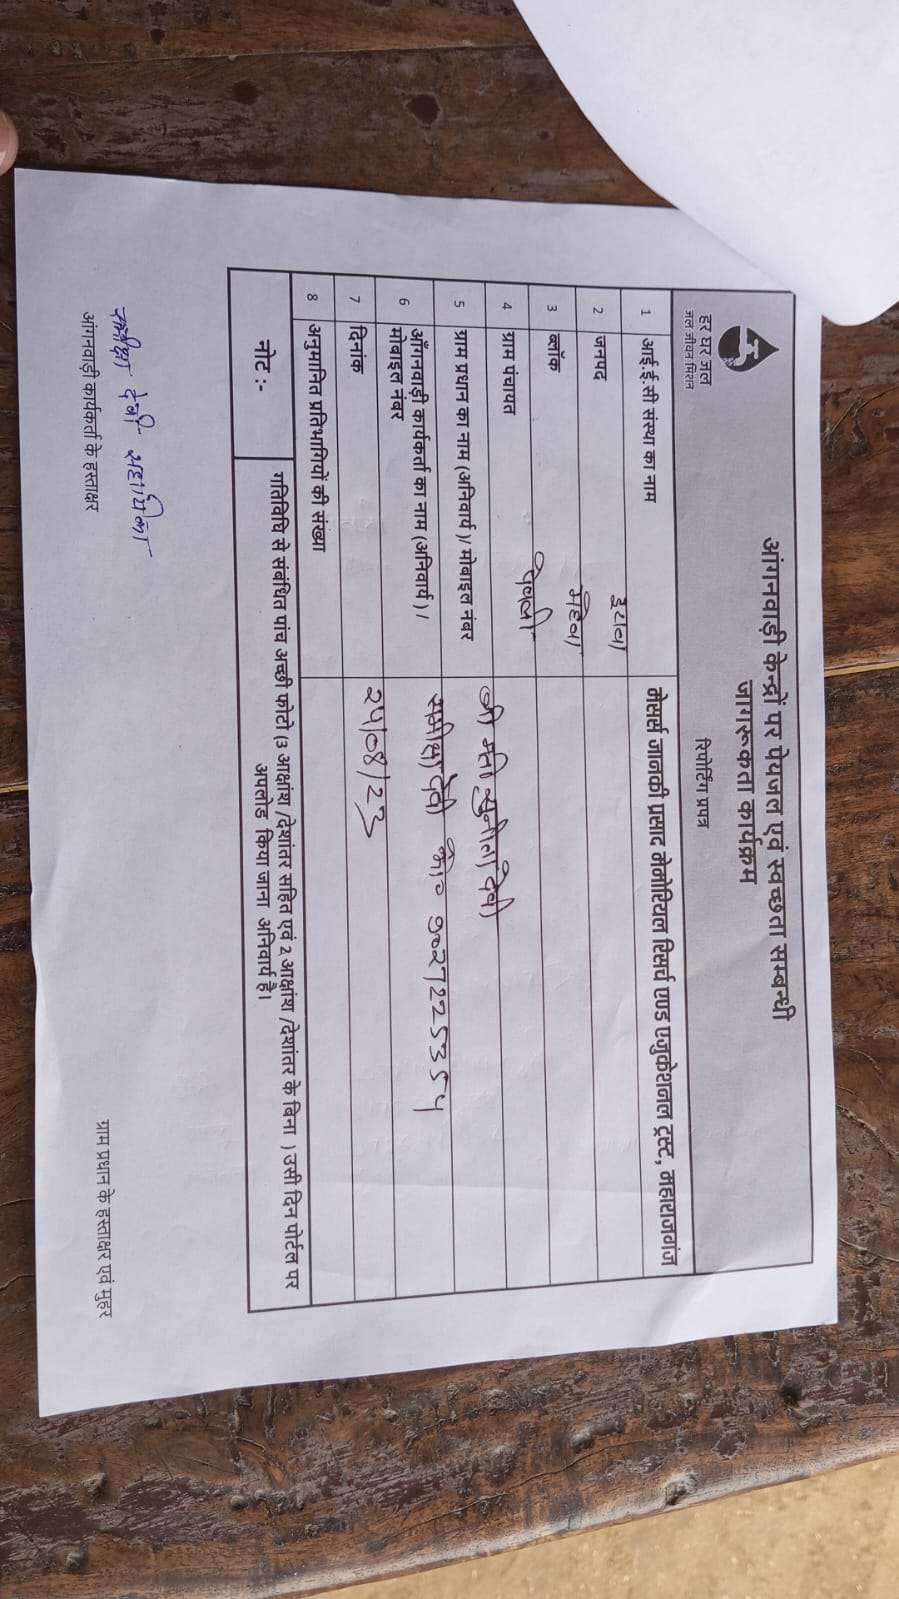 हर घर जल
जल जीवन मिशन
आंगनवाड़ी केन्द्रों पर पेयजल एवं स्वच्छता सम्बन्धी
जागरूकता कार्यक्रम
रिपोर्टिंग प्रपत्र
1 आई.ई.सी संस्था का नाम मेसर्स जानकी प्रसाद मेमोरियल रिसर्च एण्ड एजुकेशनल ट्रस्ट, महाराजगंज
2 जनपद इटावा
3 ब्लॉक महेवा
4 ग्राम पंचायत
5 ग्राम प्रधान का नाम (अनिवार्य)/ मोबाइल नंबर श्री मती सुनीता देवी
6 आँगनवाड़ी कार्यकर्ता का नाम (अनिवार्य) /
मोबाइल नंबर
देवी मो० ९०२7225354
7 दिनांक २५/08/23
8 अनुमानित प्रतिभागियों की संख्या
नोट :- गतिविधि से संबंधित पांच अच्छी फोटो (3 आक्षांश /देशांतर सहित एवं 2 आक्षांश /देशांतर के बिना ) उसी दिन पोर्टल पर
अपलोड किया जाना अनिवार्य है।
देवी सहायिका
आंगनवाड़ी कार्यकर्ता के हस्ताक्षर
ग्राम प्रधान के हस्ताक्षर एवं मुहर